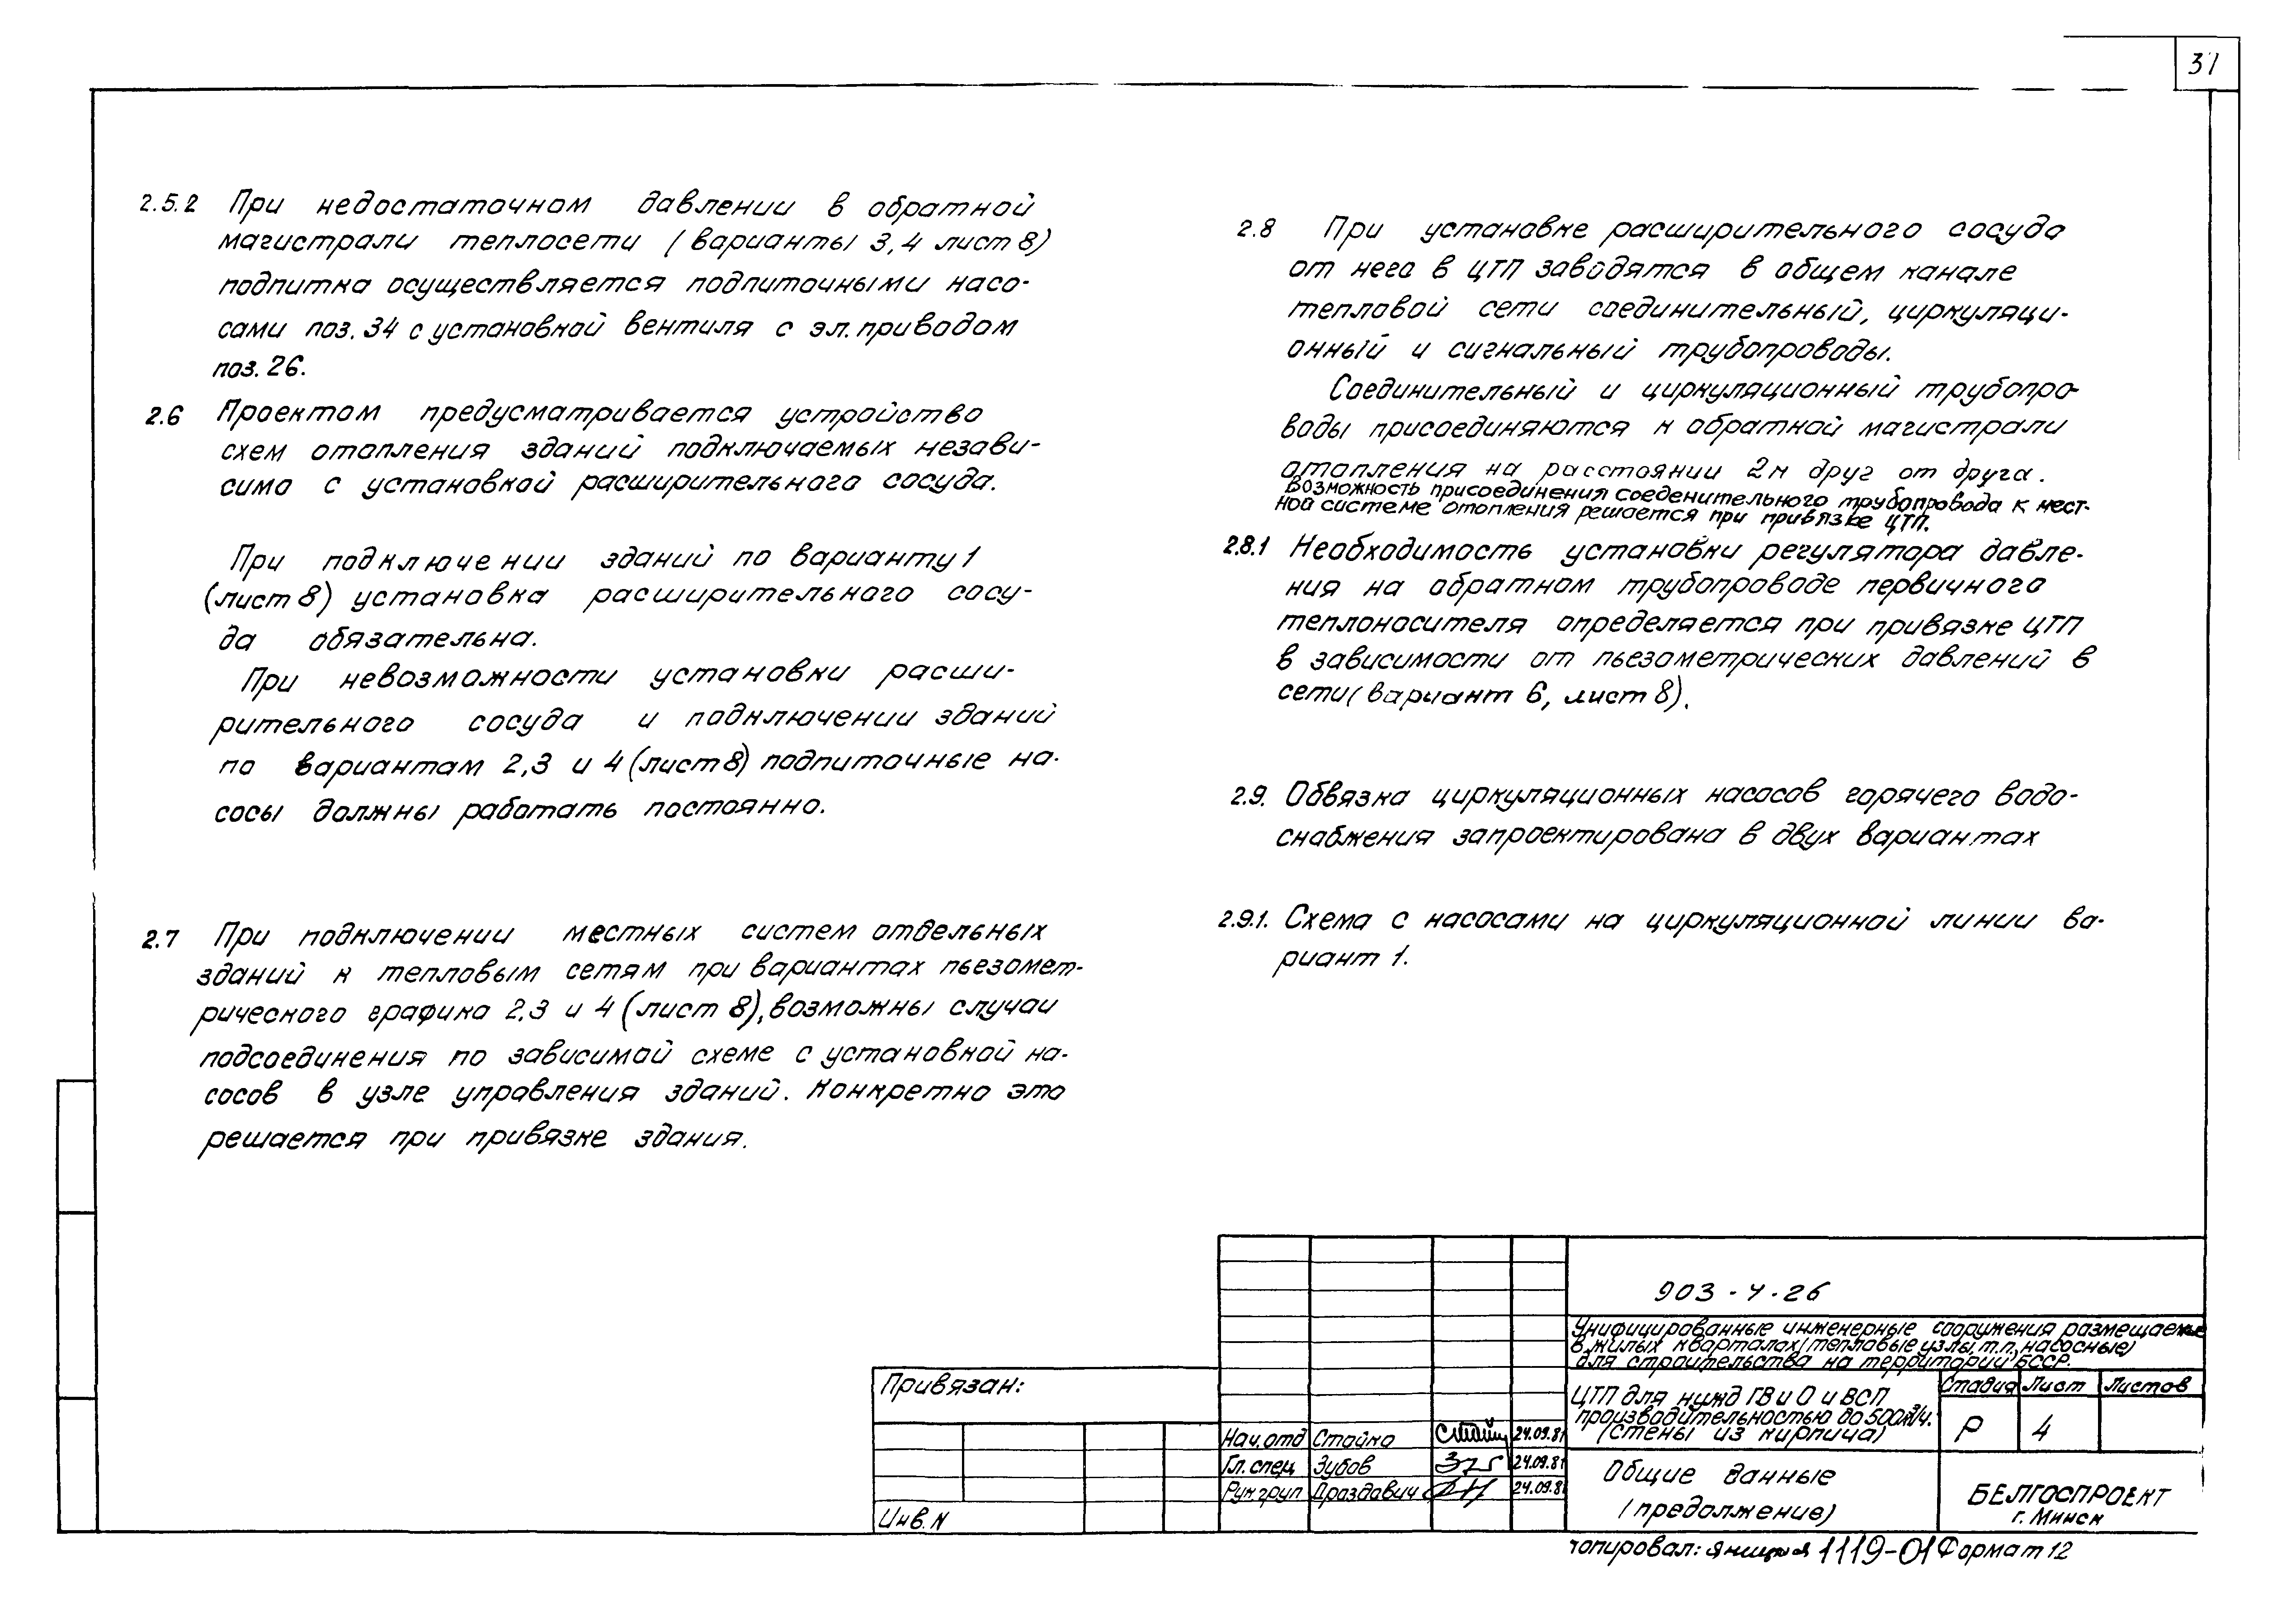 37
2.5.2 При недостаточном давлении в обратной
магистрали теплосети (варианты 3,4 лист 8)
подпитка осуществляется подпиточными насо-
сами поз. 34 с установкой вентиля с эл. приводом
поз. 26.
2.6 Проектом предусматривается устройство
схем отопления зданий подключаемых незави-
симо с установкой расширительного сосуда.
При подключении зданий по варианту 1
(лист 8) установка расширительного сосу-
да обязательна.
При невозможности установки расши-
рительного сосуда и подключении зданий
по вариантам 2,3 и 4 (лист 8) подпиточные на-
сосы должны работать постоянно.
2.7 При подключении местных систем отдельных
зданий к тепловым сетям при вариантах пьезомет-
рического графика 2,3 и 4 (лист 8), возможны случаи
подсоединения по зависимой схеме с установкой на-
сосов в узле управления зданий. Конкретно это
решается при привязке здания.
2.8 При установке расширительного сосуда
от него в ЦТП заводятся в общем канале
тепловой сети соединительный, циркуляци-
онный и сигнальный трубопроводы.
Соединительный и циркуляционный трубопро-
воды присоединяются к обратной магистрали
отопления на расстоянии 2м друг от друга.
Возможность присоединения соеденительного трубопровода к мест-
ной системе отопления решается при привязке ЦТП.
2.8.1 Необходимость установки регулятора давле-
ния на обратном трубопроводе первичного
теплоносителя определяется при привязке ЦТП
в зависимости от пьезометрических давлений в
сети (вариант 6, лист 8).
2.9. Обвязка циркуляционных насосов горячего водо-
снабжения запроектирована в двух вариантах
2.9.1. Схема с насосами на циркуляционной линии ва-
риант 1.
903-4-26
Унифицированные инженерные сооружения размещаемые
в жилых кварталах (тепловые узлы, т.п., насосные)
для строительства на территории БССР.
Привязан:
ЦТП для нужд ГВ и О и ВСП
производительностью до 500м³/ч.
(стены из кирпича)
Стадия Лист Листов
Р 4
Нач. отд Стайко 24.09.81
Гл. спец Зубов 24.09.81
Рук. груп Драздавич 24.09.81
Общие данные
(предолжение)
БЕЛГОСПРОЕКТ
г. Минск
Инв. N
копировал: 1119-01 Формат 12